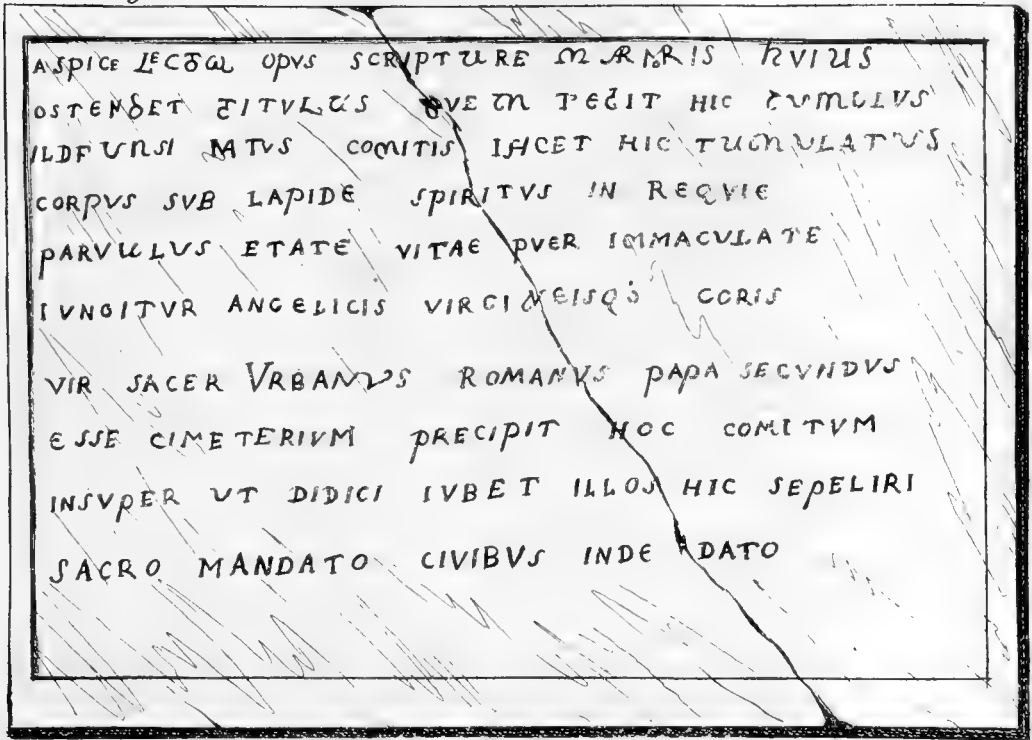 ASPICE LECTOR OPVS SCRIPTURE MARMORIS HVIUS
OSTENDET TITVLUS QVEM TEGIT HIC TVMULVS
ILDFUNSI NATVS COMITIS IACET HIC TUMVLATVS
CORPVS SVB LAPIDE SPIRITVS IN REQVIE
PARVULUS ETATE VITAE PVER IMMACVLATE
IVNGITVR ANGELICIS VIRGINEISQ3 CORIS
VIR SACER VRBANVS ROMANVS PAPA SECVNDVS
ESSE CIMETERIVM PRECIPIT HOC COMITVM
INSVPER VT DIDICI IVBET ILLOS HIC SEPELIRI
SACRO MANDATO CIVIBVS INDE DATO